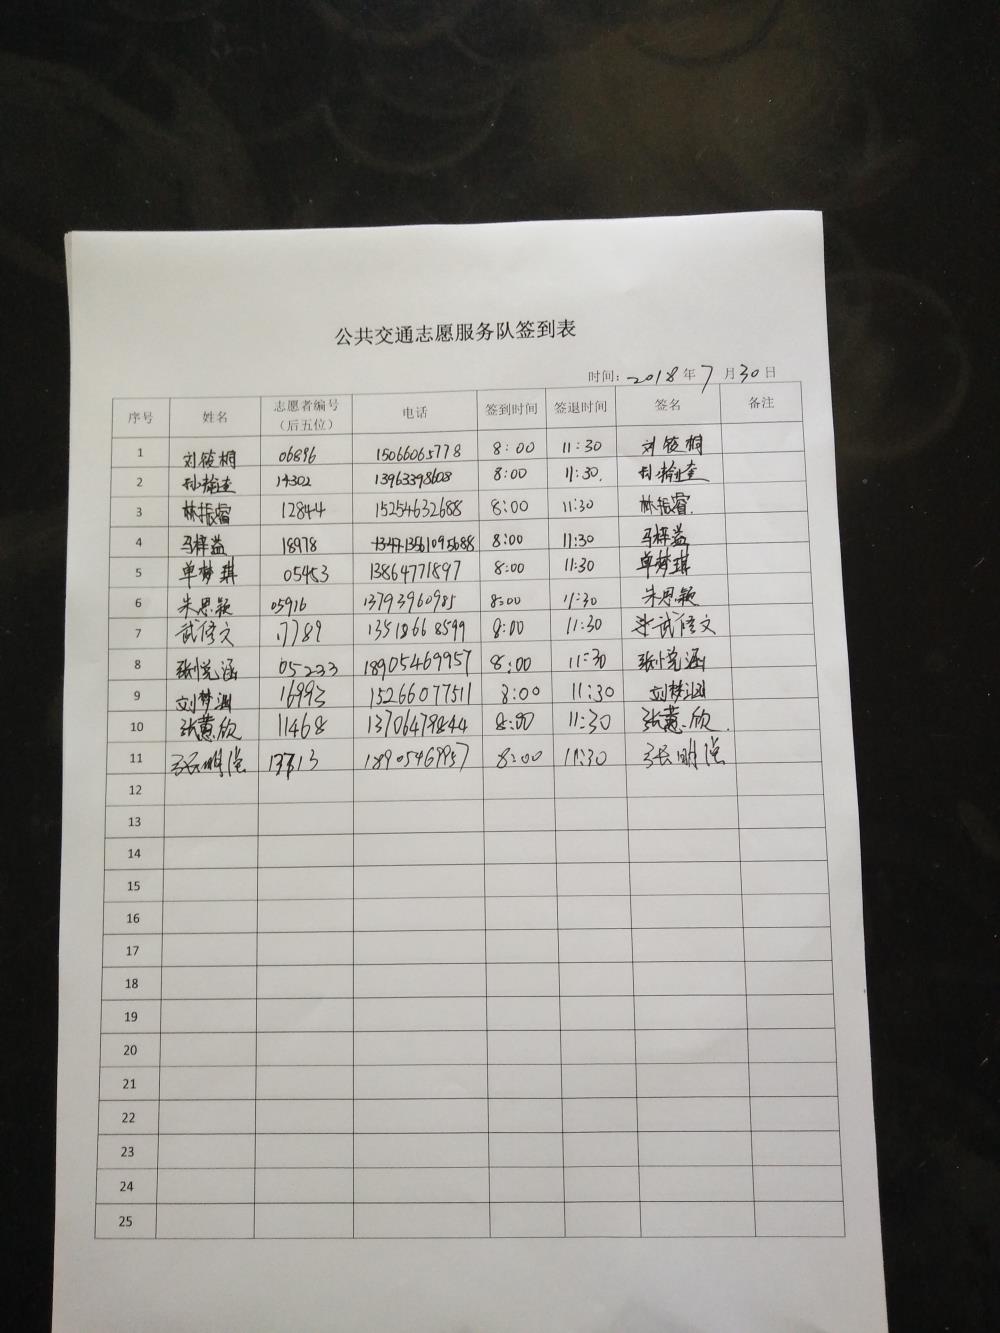 公共交通志愿服务队签到表
时间: 2018 年 7 月 30 日
序号 姓名 志愿者编号（后五位） 电话 签到时间 签退时间 签名 备注
1 刘筱桐 06896 15066065778 8:00 11:30 刘筱桐
2 14302 13963398608 8:00 11:30.
3 林振睿 12844 15254632688 8:00 11:30 林振睿
4 马梓益 18978 13561095688 8:00 11:30 马梓益
5 单梦琪 05453 13864771897 8:00 11:30 单梦琪
6 朱思颖 05916 13793960985 8:00 11:30 朱思颖
7 武修文 17789 13518668599 8:00 11:30 武修文
8 张悦涵 05233 18905469957 8:00 11:30 张悦涵
9 刘梦 16993 15266077511 8:00 11:30 刘梦
10 张蕙欣 11468 13706479844 8:00 11:30 张蕙欣
11 张明 13713 18905469957 8:00 11:30 张明
12
13
14
15
16
17
18
19
20
21
22
23
24
25